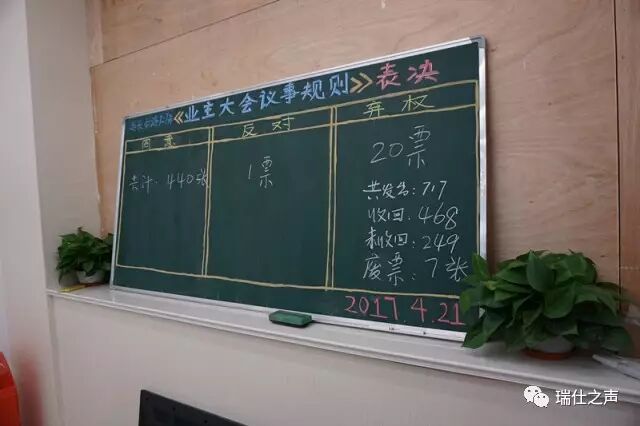 《业主大会议事规则》表决
同意
反对
弃权
共计:440张
1票
20票
共发出:717
收回:468
未收回:249
废票:7张
2017.4.21
瑞仕之声